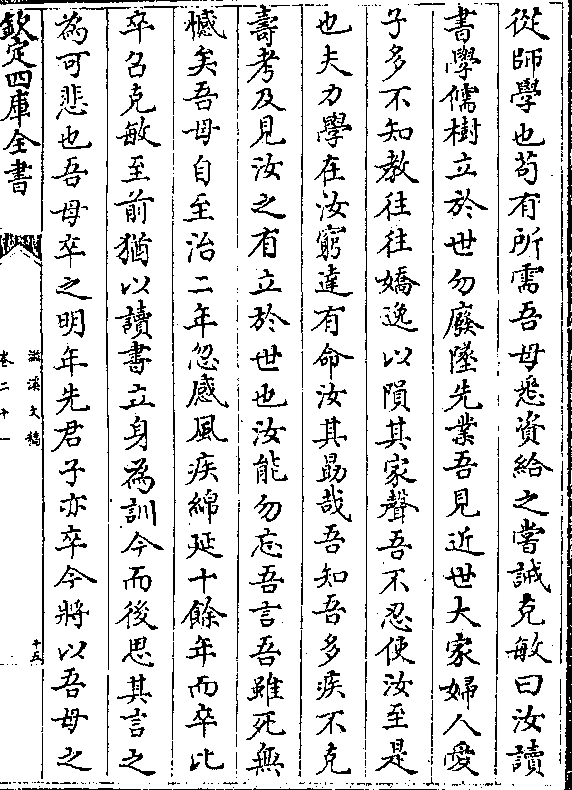 從師學也苟有所需吾母悉資給之嘗誡克敏曰汝讀
書學儒樹立於世勿廢墜先業吾見近世大家婦人愛
子多不知教往往嬌逸以隕其家聲吾不忍使汝至是
也夫力學在汝窮達有命汝其勗哉吾知吾多疾不克
壽考及見汝之有立於世也汝能勿忘吾言吾雖死無
憾矣吾母自至治二年忽感風疾綿延十餘年而卒比
卒召克敏至前猶以讀書立身為訓今而後思其言之
為可悲也吾母卒之明年先君子亦卒今將以吾母之
欽定四庫全書
滋溪文稿
卷二十一
十五